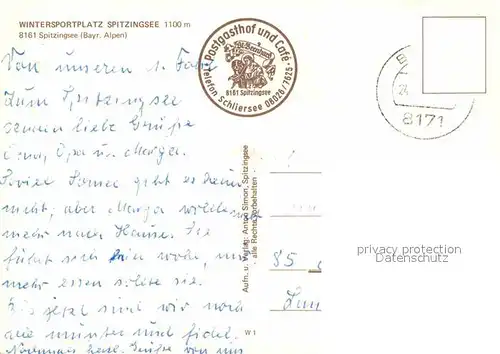 WINTERSPORTPLATZ SPITZINGSEE 1100 m
8161 Spitzingsee (Bayr. Alpen)
Postgasthof und Café
St. Bernhard
8161 Spitzingsee
Telefon Schliersee 08026/7625
8171
Von unseren 1. Fahrt
zum Spitzingsee
senden liebe Grüße
Oma, Opa u. Marga.
Soviel Sonne gibt es
nicht, aber Marga wollte
mehr nach Hause. Sie
fühlt sich hier wohl, nur
mehr essen sollte sie.
Bis jetzt sind wir noch
alle munter und fidel.
Nochmals herzl. Grüße von uns
Aufn. u. Verlag: Anton Simon, Spitzingsee
- alle Rechte vorbehalten -
W 1
85
privacy protection
Datenschutz